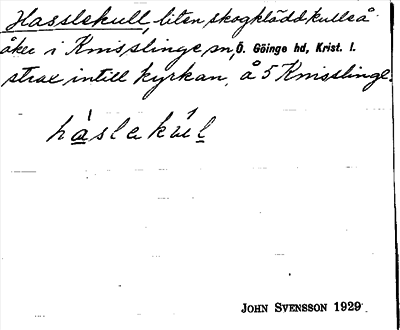 Hasslekull, liten skogklädd kulle å
åker i Knisslinge sn, Ö. Göinge hd, Krist. l.
strax intill kyrkan, å 5 Knisslinge.
hàslekúl
JOHN SVENSSON 1929